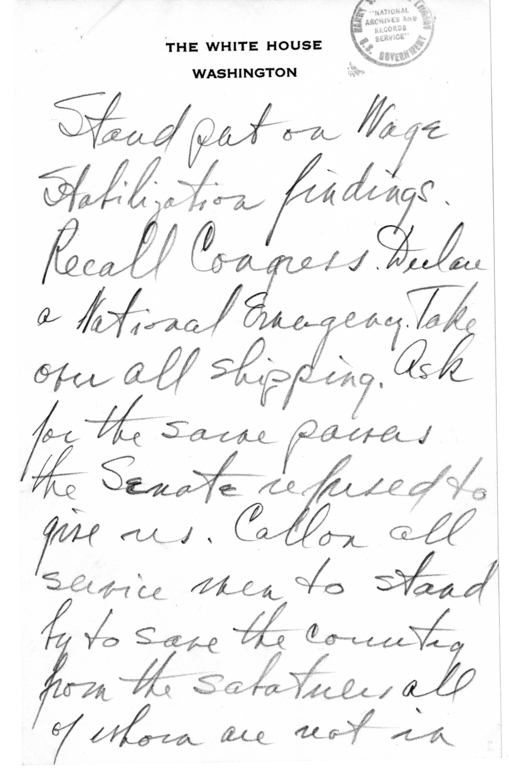 "NATIONAL
ARCHIVES AND
RECORDS
SERVICE"
U.S. GOVERNMENT
THE WHITE HOUSE
WASHINGTON
Stand pat on Wage
Stabilization findings.
Recall Congress. Declare
a National Emergency. Take
over all shipping. Ask
for the same powers
the Senate refused to
give us. Call on all
service men to stand
by to save the country
from the all
of whom are not in